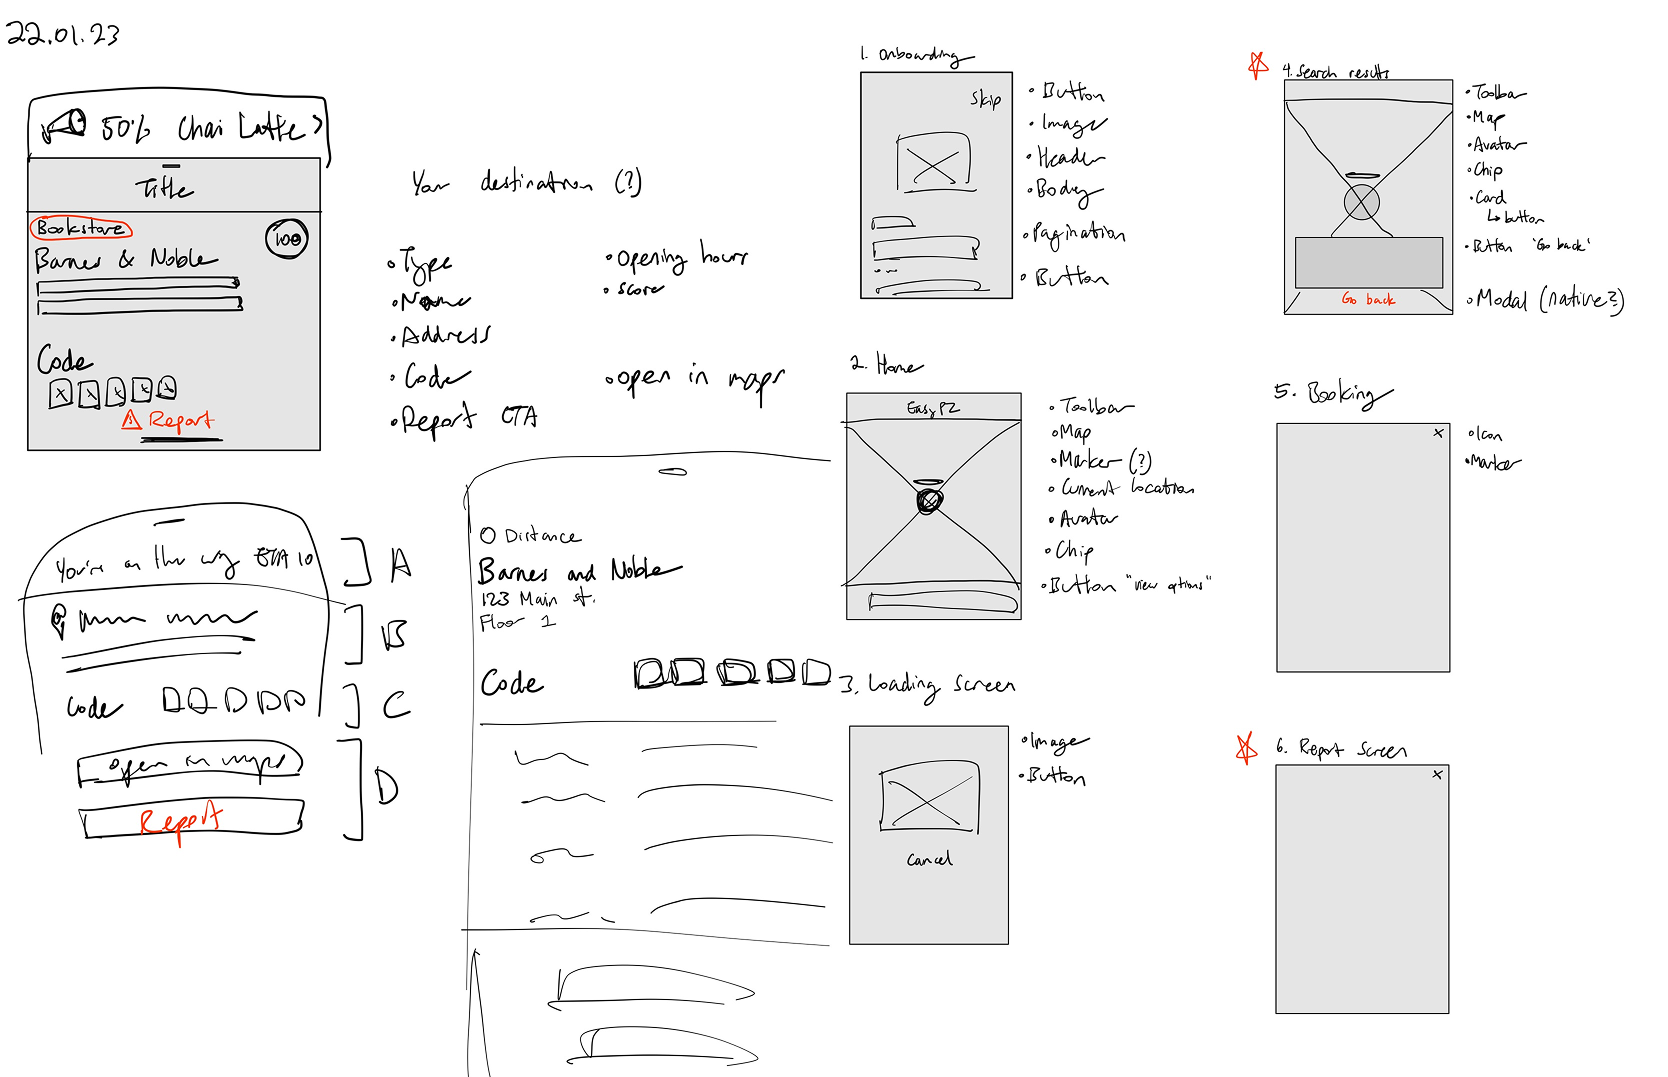 22.01.23
50% Chai Latte >
Title
Bookstore
100
Barnes & Noble
Code
Report
Your destination (?)
• Type
• Name
• Address
• Code
• Report CTA
• Opening hours
• Score
• open in maps
You're on the way ETA 10
A
B
Code
C
open in maps
D
Report
Distance
Barnes and Noble
123 Main st.
Floor 1
Code
1. Onboarding
Skip
• Button
• Image
• Header
• Body
• Pagination
• Button
2. Home
EasyPZ
• Toolbar
• Map
• Marker (?)
• Current location
• Avatar
• Chip
• Button "view options"
3. Loading Screen
• Image
• Button
Cancel
4. Search results
• Toolbar
• Map
• Avatar
• Chip
• Card
↳ button
• Button 'Go back'
Go back
• Modal (native?)
5. Booking
x
• Icon
• Marker
6. Report Screen
x